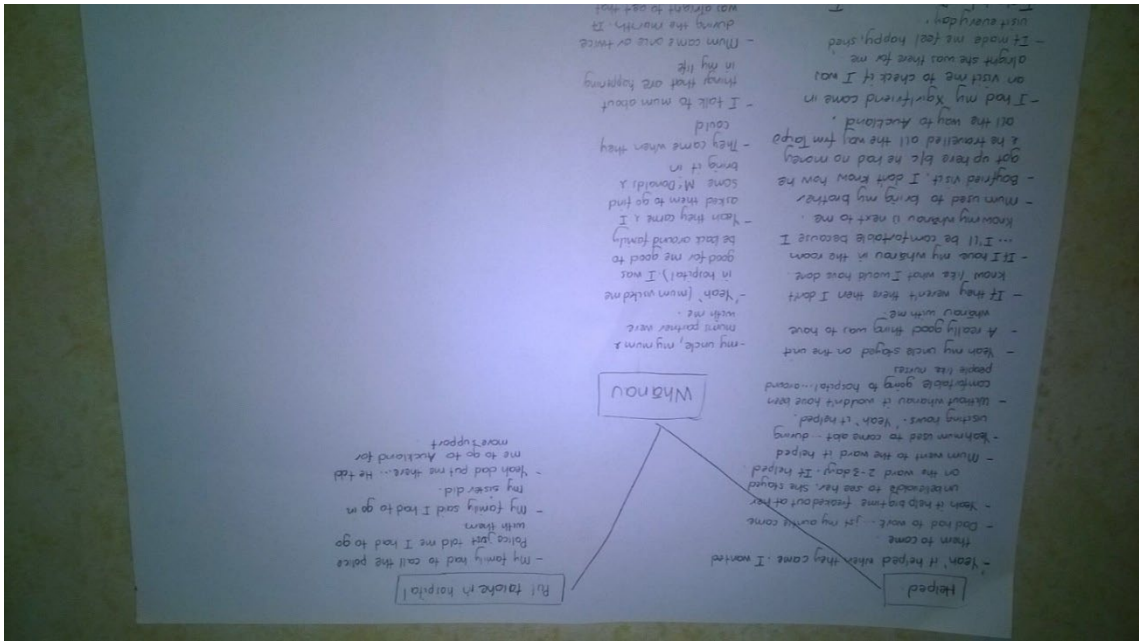 Helped
- "Yeah" it helped when they came I wanted
them to come.
- Dad had to work... jst my aunty come
- Yeah it help big time freaked out at her
unbelievable to see her. She stayed
on the ward 2-3 days. It helped.
- Mum went to the ward it helped
- Yeah mum used to come abt.. during
visiting hours. "Yeah" it helped.
- Without whānau it wouldn't have been
comfortable going to hospital...around
people like nurses
- Yeah my uncle stayed on the unit
- A really good thing was to have
whānau with me.
- If they weren't there then I don't
know like what I would have done.
- If I have my whānau in the room
... I'll be comfortable because I
know my whānau is next to me.
- Mum used to bring my brother
- Boyfried visit, I don't know how he
got up here b/c he had no money
& he travelled all the way frm Taipā
all the way to Auckland.
- I had my Xgirlfriend come in
an visit me to check if I was
alright she was there for me.
- It made me feel happy, shed,
visit everyday.
Put taiohi in hospital
- My family had to call the police
Police just told me I had to go
with them
- My family said I had to go in
my sister did.
- Yeah dad put me there... He told
me to go to Auckland for
more support.
Whānau
- my uncle, my mum &
mums partner were
with me.
- "Yeah" (mum visited me
in hospital) I was
good for me good to
be back around family
- Yeah they came & I
asked them to go find
some McDonalds &
bring it in
- They came when they
could
- I talk to mum about
things that are happening
in my life
- Mum came once or twice
during the month. It
was alright to get that